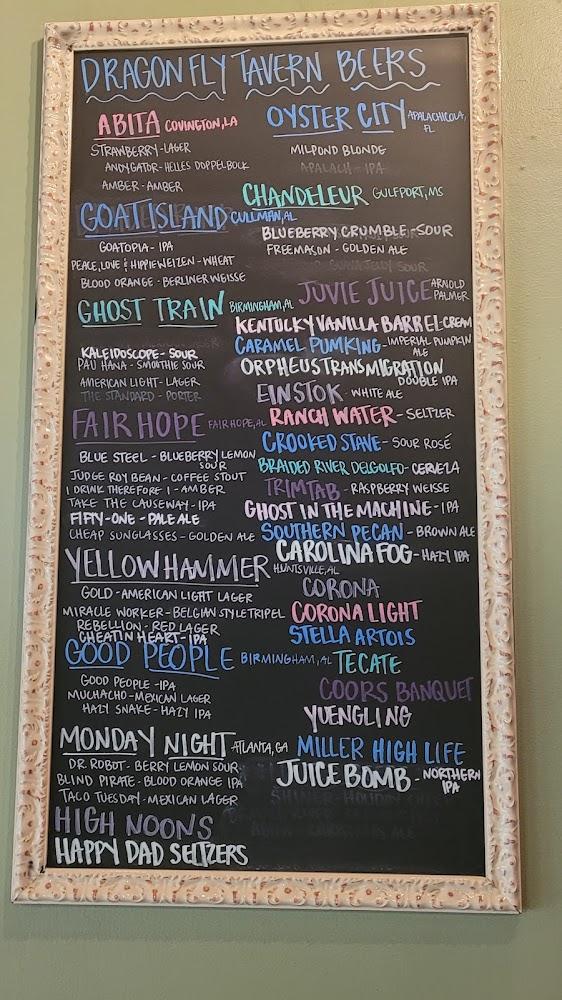 DRAGONFLY TAVERN BEERS
ABITA COVINGTON, LA
STRAWBERRY - LAGER
ANDYGATOR - HELLES DOPPELBOCK
AMBER - AMBER
GOAT ISLAND CULLMAN, AL
GOATOPIA - IPA
PEACE, LOVE & HIPPIEWEIZEN - WHEAT
BLOOD ORANGE - BERLINER WEISSE
GHOST TRAIN BIRMINGHAM, AL
KALEIDOSCOPE - SOUR
PAU HANA - SMOOTHIE SOUR
AMERICAN LIGHT - LAGER
THE STANDARD - PORTER
FAIRHOPE FAIRHOPE, AL
BLUE STEEL - BLUEBERRY LEMON
SOUR
JUDGE ROY BEAN - COFFEE STOUT
I DRINK THEREFORE I - AMBER
TAKE THE CAUSEWAY - IPA
FIFTY-ONE - PALE ALE
CHEAP SUNGLASSES - GOLDEN ALE
YELLOWHAMMER HUNTSVILLE, AL
GOLD - AMERICAN LIGHT LAGER
MIRACLE WORKER - BELGIAN STYLE TRIPEL
REBELLION - RED LAGER
CHEATIN HEART - IPA
GOOD PEOPLE BIRMINGHAM, AL
GOOD PEOPLE - IPA
MUCHACHO - MEXICAN LAGER
HAZY SNAKE - HAZY IPA
MONDAY NIGHT ATLANTA, GA
DR. ROBOT - BERRY LEMON SOUR
BLIND PIRATE - BLOOD ORANGE IPA
TACO TUESDAY - MEXICAN LAGER
HIGH NOONS
HAPPY DAD SELTZERS
OYSTER CITY APALACHICOLA,
FL
MILPOND BLONDE
APALACH - IPA
CHANDELEUR GULFPORT, MS
BLUEBERRY CRUMBLE - SOUR
FREEMASON - GOLDEN ALE
GUAVA JELLY SOUR
JUVIE JUICE ARNOLD
PALMER
KENTUCKY VANILLA BARREL CREAM
CARAMEL PUMKING - IMPERIAL PUMPKIN
ALE
ORPHEUS TRANSMIGRATION
DOUBLE IPA
EINSTOK - WHITE ALE
RANCH WATER - SELTZER
CROOKED STAVE - SOUR ROSÉ
BRAIDED RIVER DELGOLFO - CERVEZA
TRIMTAB - RASPBERRY WEISSE
GHOST IN THE MACHINE - IPA
SOUTHERN PECAN - BROWN ALE
CAROLINA FOG - HAZY IPA
CORONA
CORONA LIGHT
STELLA ARTOIS
TECATE
COORS BANQUET
YUENGLING
MILLER HIGH LIFE
JUICE BOMB - NORTHERN
IPA